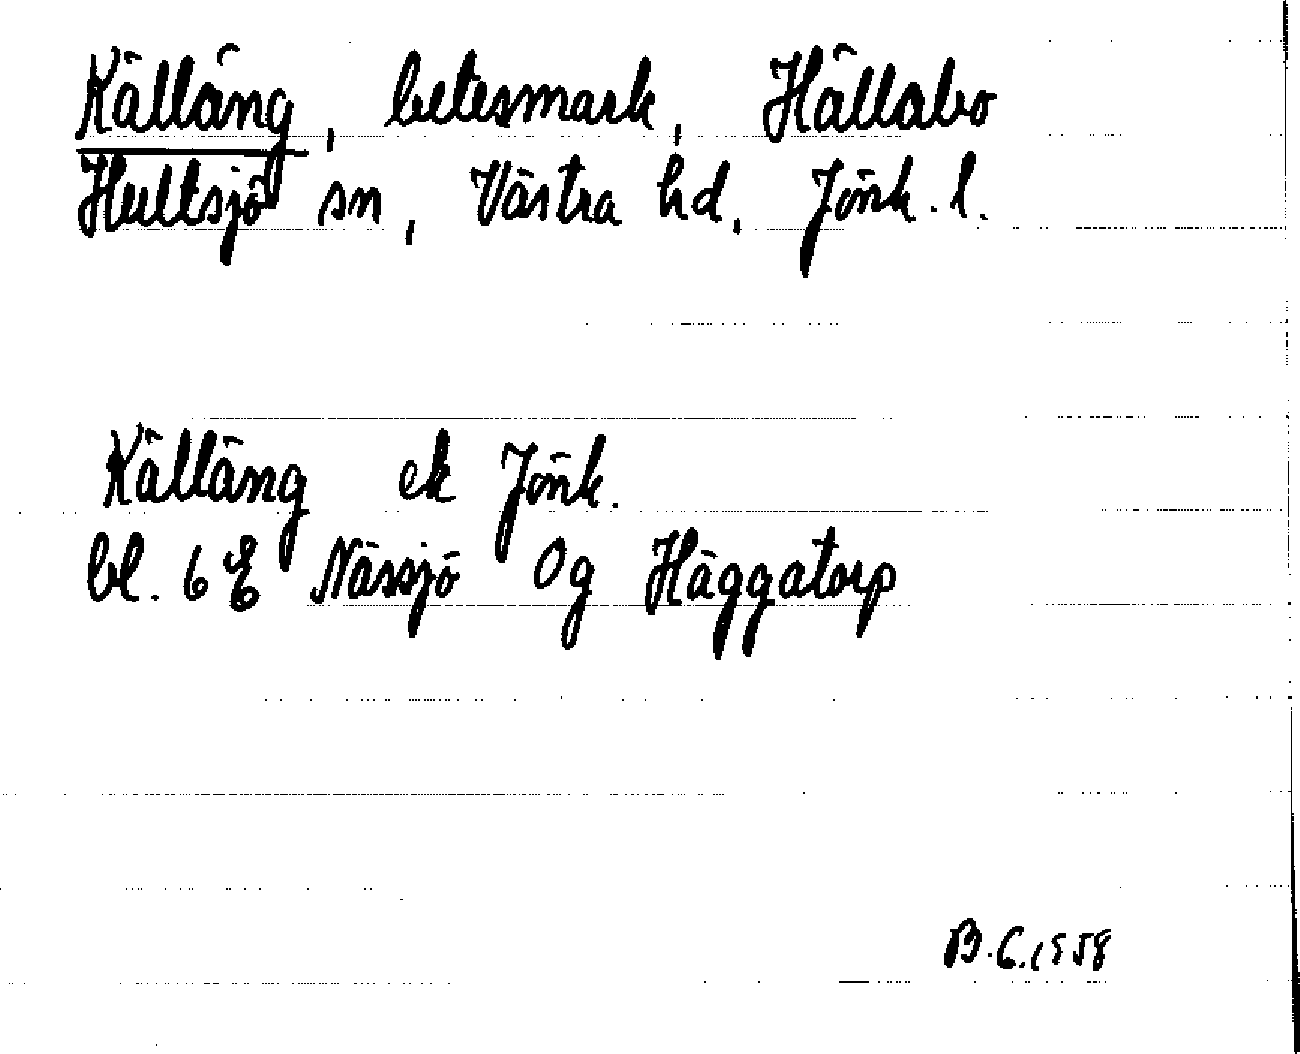 Källäng, betesmark, Hällabo
Hultsjö sn, Västra hd, Jönk. l.
Källäng ek Jönk.
bl. 6 E Nässjö 0g Häggatorp
B.C. 1958